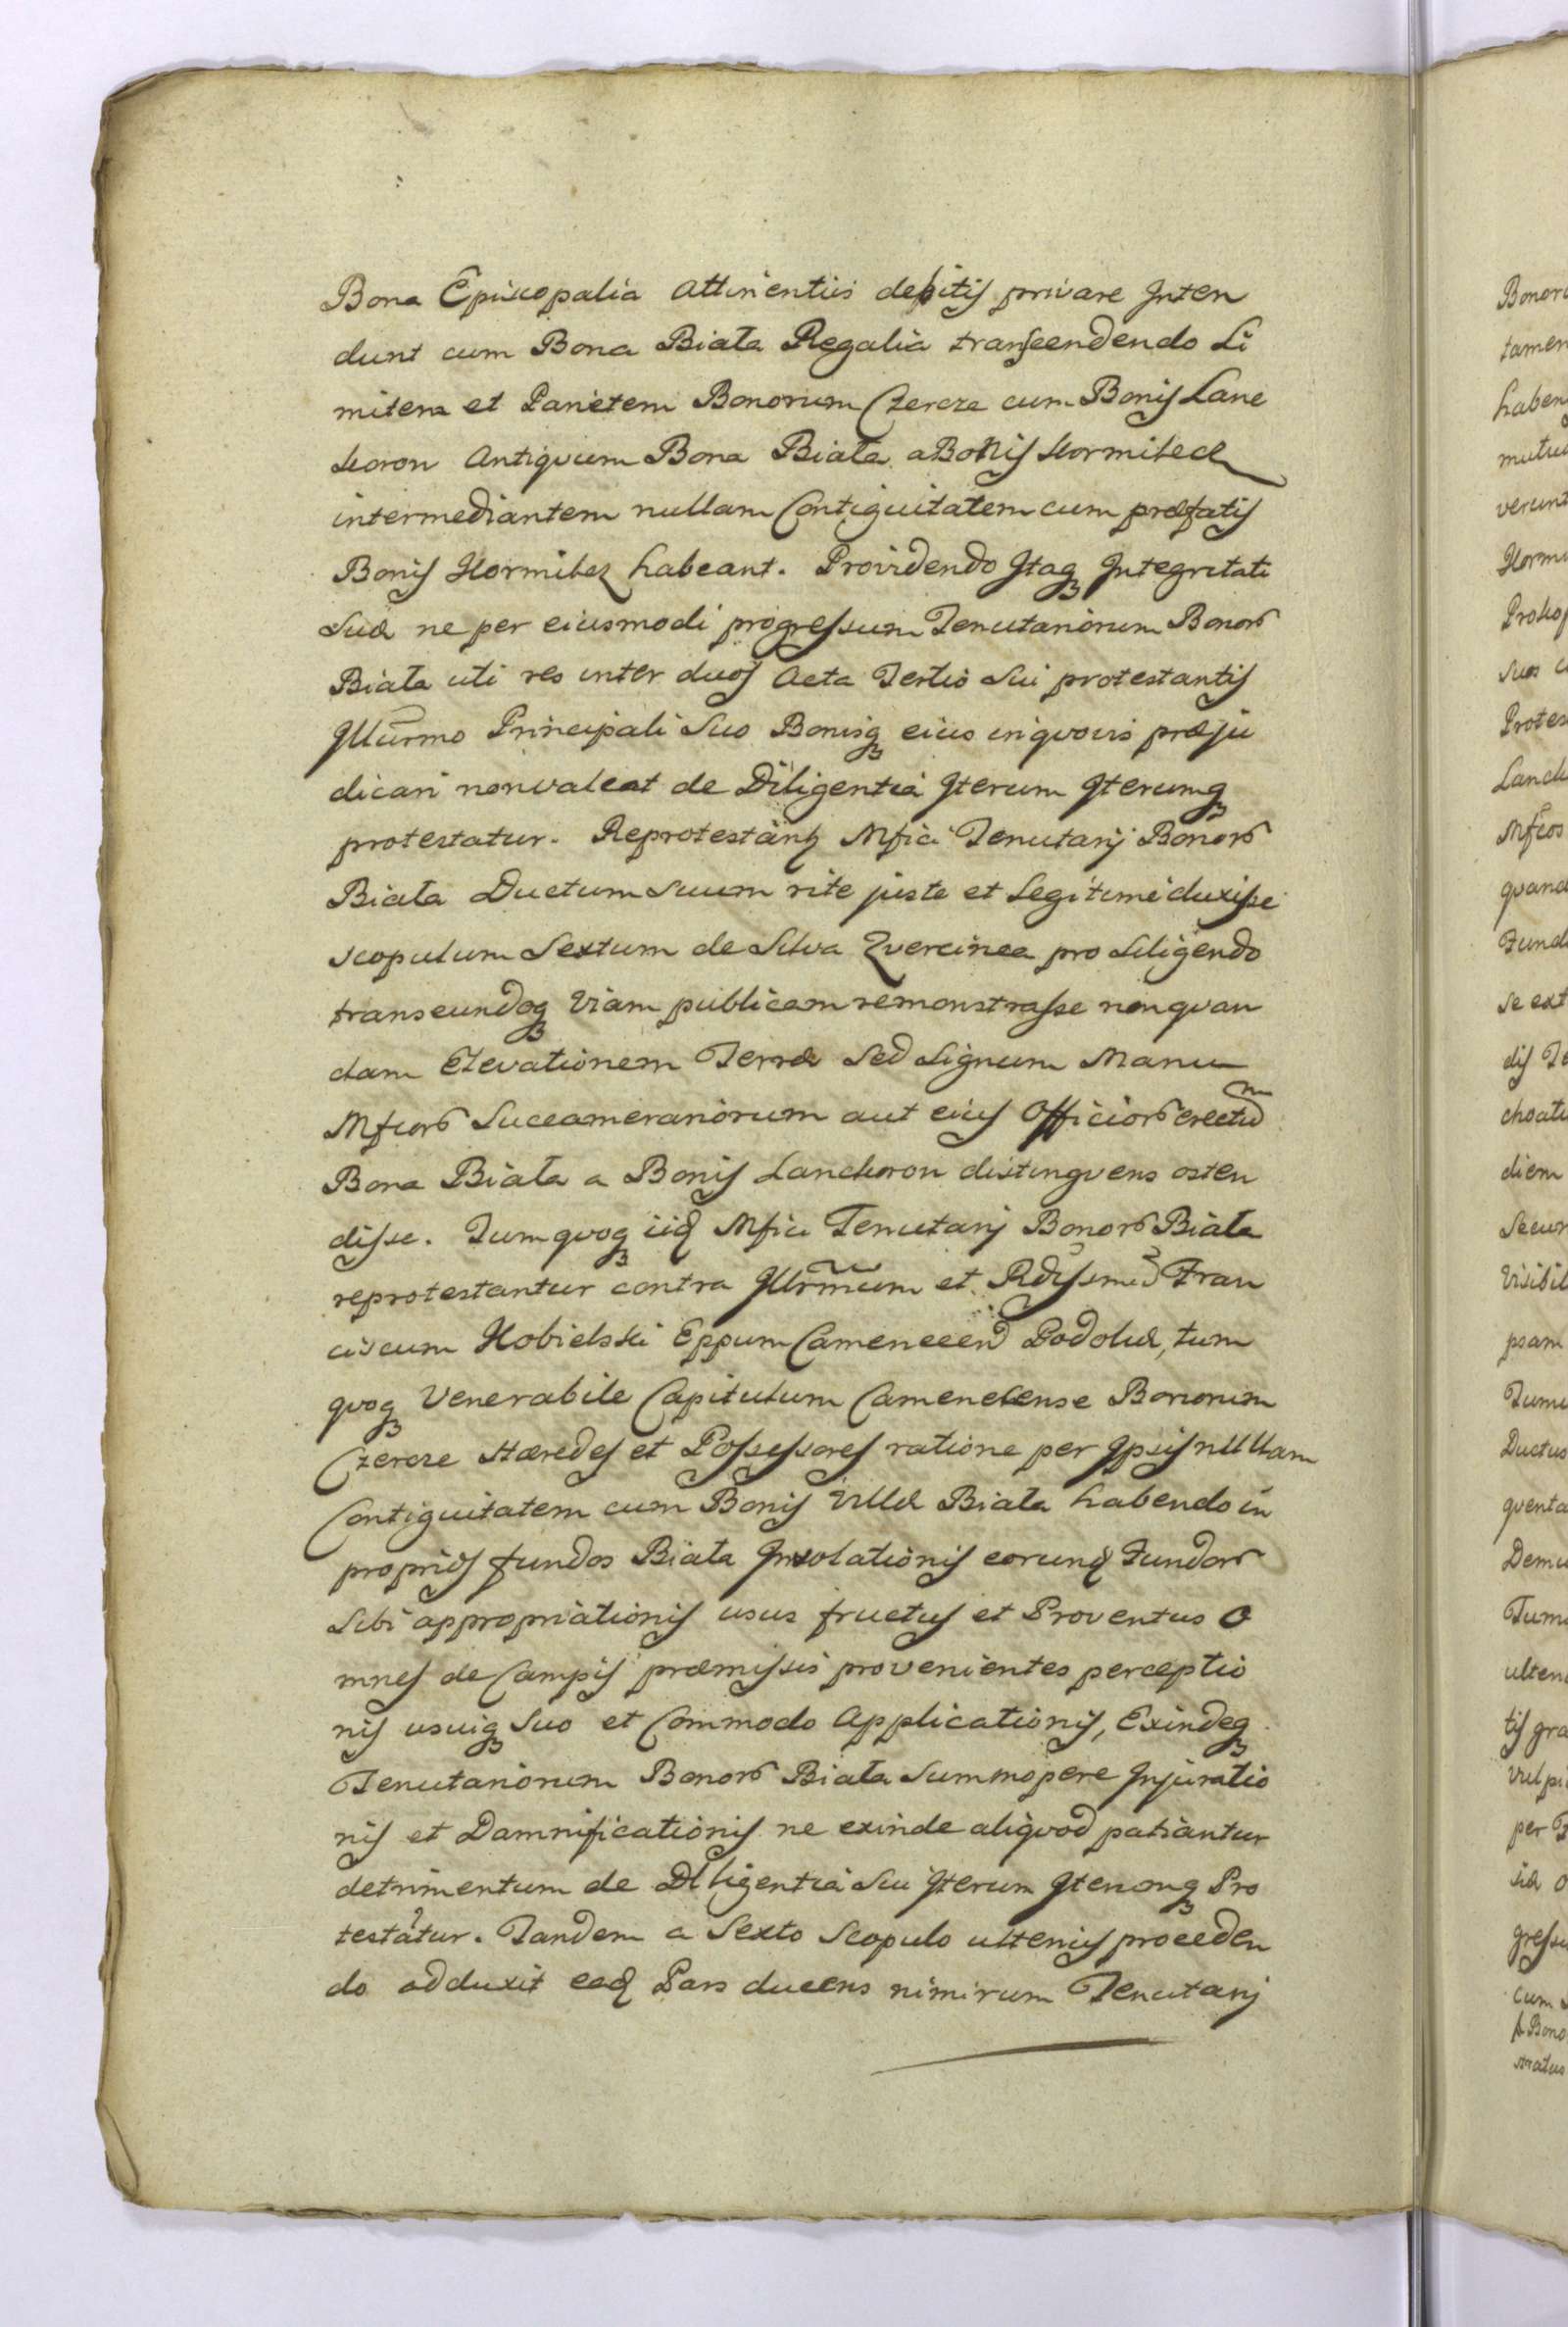 Bona Episcopalia attinentiis debitis privare Inten
dunt cum Bona Biała Regalia transcendendo Li
mitem et Parietem Bonorum Czercze cum Bonis Lanc
koron Antiquum Bona Biała a Bonis Hormilecz
intermediantem nullam Contiguitatem cum præfatis
Bonis Hormilez habeant. Providendo Itaq Integritati
Suæ ne per eiusmodi progressum Tenutariorum Bonor
Biała uti res inter duos acta Tertio Sui protestantis
Illurmo Principali Suo Bonisq eius in quovis præju
dicari non valeat de Diligentia Iterum Iterumq
protestatur. Reprotestantq Mfici Tenutarij Bonor
Biała Ductum Suum rite juste et legitime duxisse
scopulum Sextum de Silva Quercinea pro Siligendo
transeundoq Viam publicam remonstrasse non quan
dam Elevationem Terræ Sed Signum Manu
Mficor Succamerariorum aut eius Officior erectu m
Bona Biała a Bonis Lanckoron distinguens osten
disse. Tum quoq iid Mfici Tenutarij Bonor Biała
reprotestantur contra Illrmum et Rdissmu Fran
ciscum Kobielski Eppum Camenecen Podoliæ, tum
quoq Venerabile Capitulum Camenecense Bonorum
Czercze Hæredes et Possessores ratione per Ipsis nullam
Contiguitatem cum Bonis Villæ Biała habendo in
proprios fundos Biała Inviolationis eorund Fundor
Sibi appropriationis usus fructus et Proventus O
mnes de Campis præmissis provenientes perceptio
nis usuiq Suo et Commodo Applicationis, Exindeq
Tenutariorum Bonor Biała Summopere Injuriatio
nis et Damnificationis ne exinde aliquod patiantur
detrimentum de Diligentia Sui Iterum Iterumq Pro
testatur. Tandem a Sexto Scopulo ulterius proceden
do adduxit ead Pars ducens nimirum Tenutarij